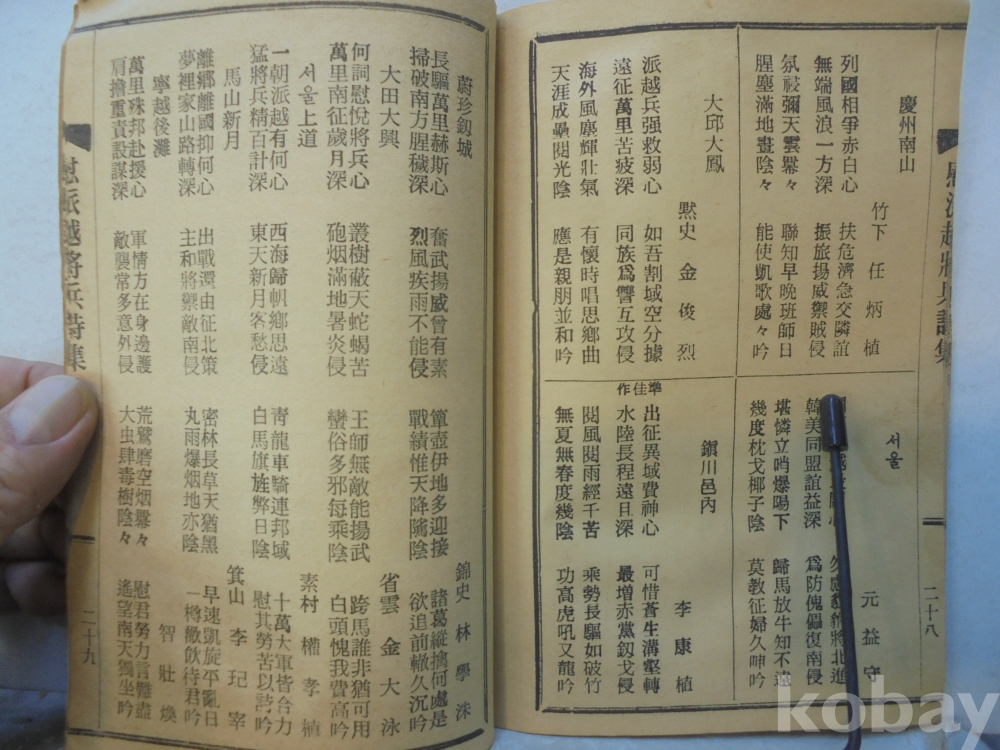 慰派越將兵詩集
二十八
慶州南山 竹下 任炳植
列國相爭赤白心 扶危濟急交隣誼
無端風浪一方深 振旅揚威禦賊侵
氛祲彌天雲羃々 聯知早晩班師日
腥塵滿地晝陰々 能使凱歌處々吟
서울 元益守
將北進
韓美同盟誼益深 爲防傀儡復南侵
堪憐立哨爆陽下 歸馬放牛知不遠
幾度枕戈椰子陰 莫教征婦久呻吟
大邱大鳳 默史 金俊烈
派越兵强救弱心 如吾割域空分據
遠征萬里苦疲深 同族爲讐互攻侵
海外風塵輝壯氣 有懷時唱思鄕曲
天涯成壘閱光陰 應是親朋並和吟
準佳作
鎭川邑內 李康植
出征異域費神心 可惜蒼生溝壑轉
水陸長程遠且深 最增赤黨釼戈侵
閱風閱雨經千苦 乘勢長驅如破竹
無夏無春度幾陰 功高虎吼又龍吟
蔚珍釼城 錦史 林學洙
長驅萬里赫斯心 奮武揚威曾有素 簞壺伊地多迎接 諸葛縱擒何處是
掃破南方腥穢深 烈風疾雨不能侵 戰績惟天降隲陰 欲追前轍久沉吟
大田大興 省雲 金大泳
何詞慰悅將兵心 叢樹蔽天蛇蝎苦 王師無敵能揚武 跨馬誰非猶可用
萬里南征歲月深 砲烟滿地暑炎侵 蠻俗多邪每乘陰 白頭愧我費高吟
서울上道 素村 權孝植
一朝派越有何心 西海歸帆鄕思遠 靑龍車騎連邦域 十萬大軍皆合力
猛將兵精百計深 東天新月客愁侵 白馬旗旌弊日陰 慰其勞苦以詩吟
馬山新月 箕山 李玘宰
離鄕離國抑何心 出戰還由征北策 密林長草天猶黑 早速凱旋平亂日
夢裡家山路轉深 主和將禦敵南侵 丸雨爆烟地亦陰 一樽歡飮待君吟
寧越後灘 智壯煥
萬里殊邦赴援心 軍情方在身邊護 荒鷲磨空烟羃々 慰君勞力言難盡
肩擔重責設謀深 敵襲常多意外侵 大虫肆毒樹陰々 遙望南天獨坐吟
慰派越將兵詩集
二十九
kobay